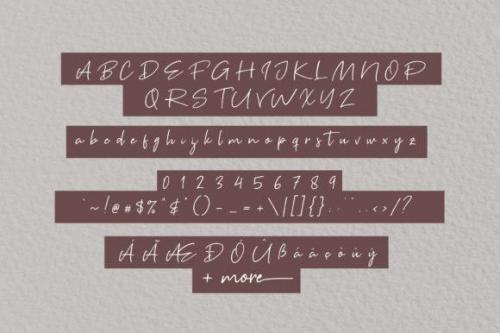 ABCDEFGHIJKLMNOP
QRSTUVWXYZ
abcdefghijklmnopqrstuvwxyz
0123456789
`~!@#$%^&*()-_=+\|[]{}..''"..,<>/?
ÁÃÆÐÓÛßáäçöüÿ
+ more